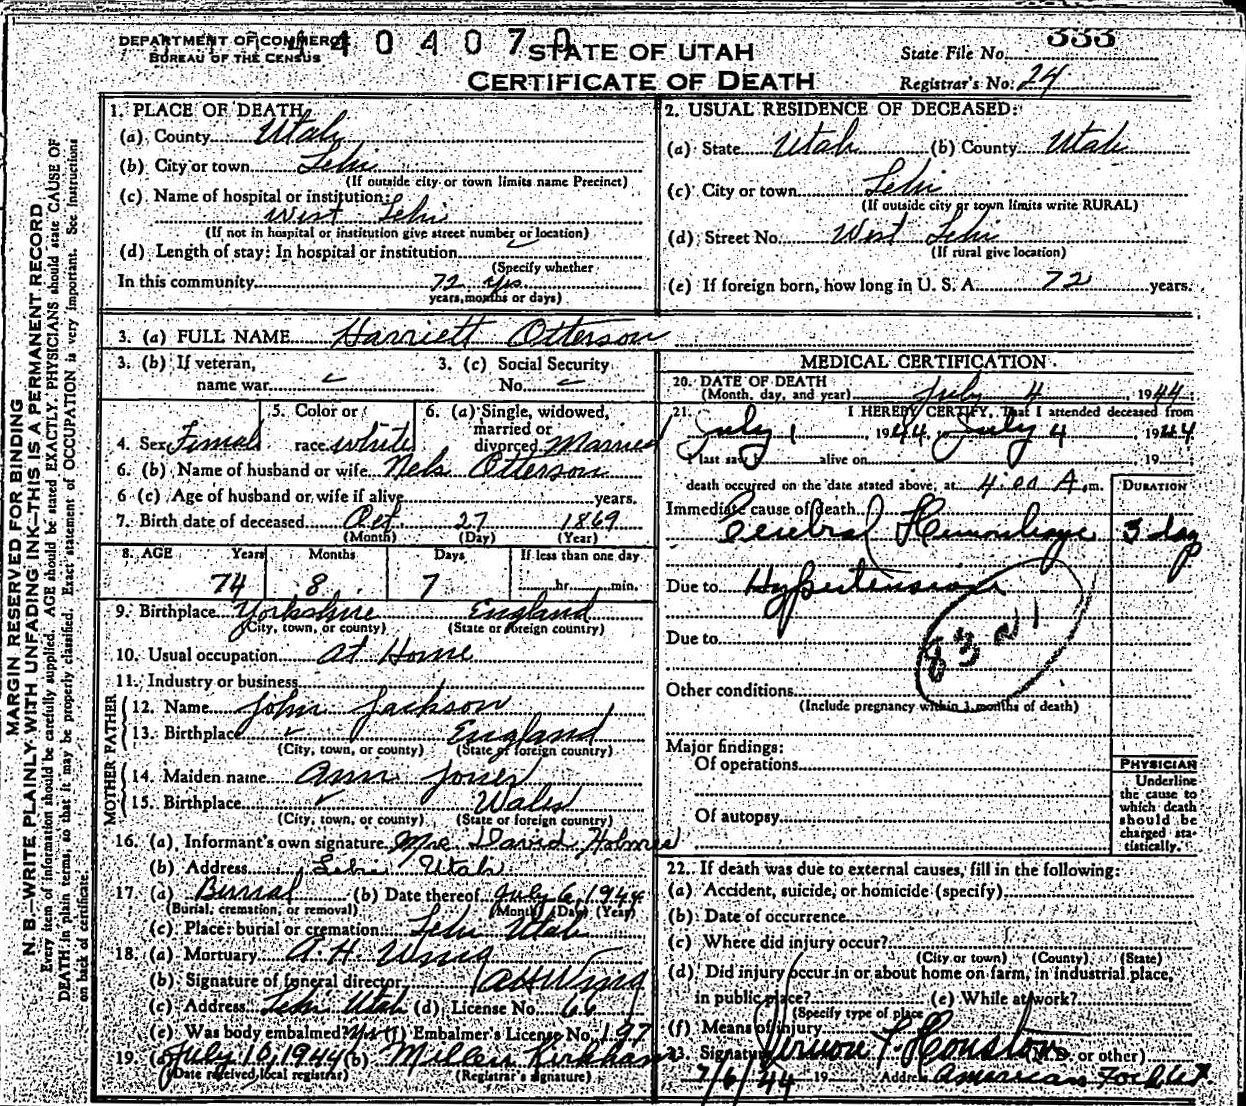 DEPARTMENT OF COMMERCE
BUREAU OF THE CENSUS
404070
STATE OF UTAH
CERTIFICATE OF DEATH
State File No. 333
Registrar's No: 24
MARGIN RESERVED FOR BINDING
N. B.—WRITE PLAINLY WITH UNFADING INK—THIS IS A PERMANENT RECORD
Every item of information should be carefully supplied. AGE should be stated EXACTLY. PHYSICIANS should state CAUSE OF
DEATH in plain terms, so that it may be properly classified. Exact statement of OCCUPATION is very important. See Instructions
on back of certificate.
1. PLACE OF DEATH
(a) County Utah
(b) City or town Lehi
(If outside city or town limits name Precinct)
(c) Name of hospital or institution:
West Lehi
(If not in hospital or institution give street number or location)
(d) Length of stay: In hospital or institution
(Specify whether
In this community 72 yrs.
years, months or days)
2. USUAL RESIDENCE OF DECEASED:
(a) State Utah (b) County Utah
(c) City or town Lehi
(If outside city or town limits write RURAL)
(d) Street No. West Lehi
(If rural give location)
(e) If foreign born, how long in U. S. A. 72 years.
3. (a) FULL NAME Harriett Otterson
3. (b) If veteran,
name war
3. (c) Social Security
No.
4. Sex Female
5. Color or
race white
6. (a) Single, widowed,
married or
divorced Married
6. (b) Name of husband or wife Nels Otterson
6 (c) Age of husband or wife if alive years.
7. Birth date of deceased Oct. 27 1869
(Month) (Day) (Year)
8. AGE Years Months Days If less than one day
74 8 7 hr. min.
9. Birthplace Yorkshire England
(City, town, or county) (State or foreign country)
10. Usual occupation At Home
11. Industry or business
FATHER
12. Name John Jackson
13. Birthplace England
(City, town, or county) (State of foreign country)
MOTHER
14. Maiden name Ann Jones
15. Birthplace Wales
(City, town, or county) (State or foreign country)
16. (a) Informant's own signature Mrs David Holmes
(b) Address Lehi Utah
17. (a) Burial (b) Date thereof July 6, 1944
(Burial, cremation, or removal) (Month) (Day) (Year)
(c) Place: burial or cremation Lehi Utah
18. (a) Mortuary A. H. Wing
(b) Signature of funeral director AHWing
(c) Address Lehi Utah (d) License No. 66
(e) Was body embalmed? Yes (f) Embalmer's License No. 197
19. (a) July 10, 1944 (b) Millen Kirkham
(Date received local registrar) (Registrar's signature)
MEDICAL CERTIFICATION
20. DATE OF DEATH
(Month, day, and year) July 4, 1944
21. I HEREBY CERTIFY, That I attended deceased from
July 1, 1944 July 4, 1944
I last saw alive on 19
death occurred on the date stated above, at 4:00 A. m.
DURATION
Immediate cause of death
Cerebral Hemorrhage 3 day
Due to Hypertension
Due to
Other conditions
(Include pregnancy within 3 months of death)
Major findings:
Of operations
Of autopsy
PHYSICIAN
Underline
the cause to
which death
should be
charged sta-
tistically.
22. If death was due to external causes, fill in the following:
(a) Accident, suicide, or homicide (specify)
(b) Date of occurrence
(c) Where did injury occur?
(City or town) (County) (State)
(d) Did injury occur in or about home on farm, in industrial place,
in public place? (e) While at work?
(Specify type of place
(f) Means of injury
23. Signature Vernon F. Houston (M.D. or other)
7/6/44 19 Address American Fork Ut.